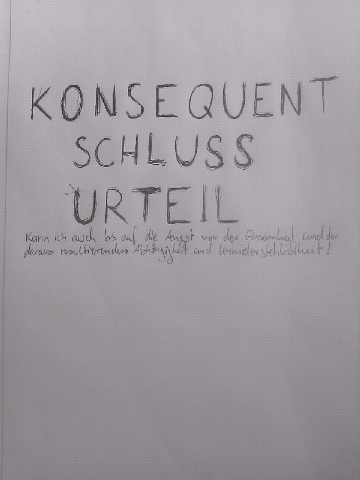 KONSEQUENT
SCHLUSS
URTEIL
Kann ich auch bis auf die Angst vor der Einsamkeit und der
daraus resultierenden Abhängigkeit und Unwiderstehlichkeit!